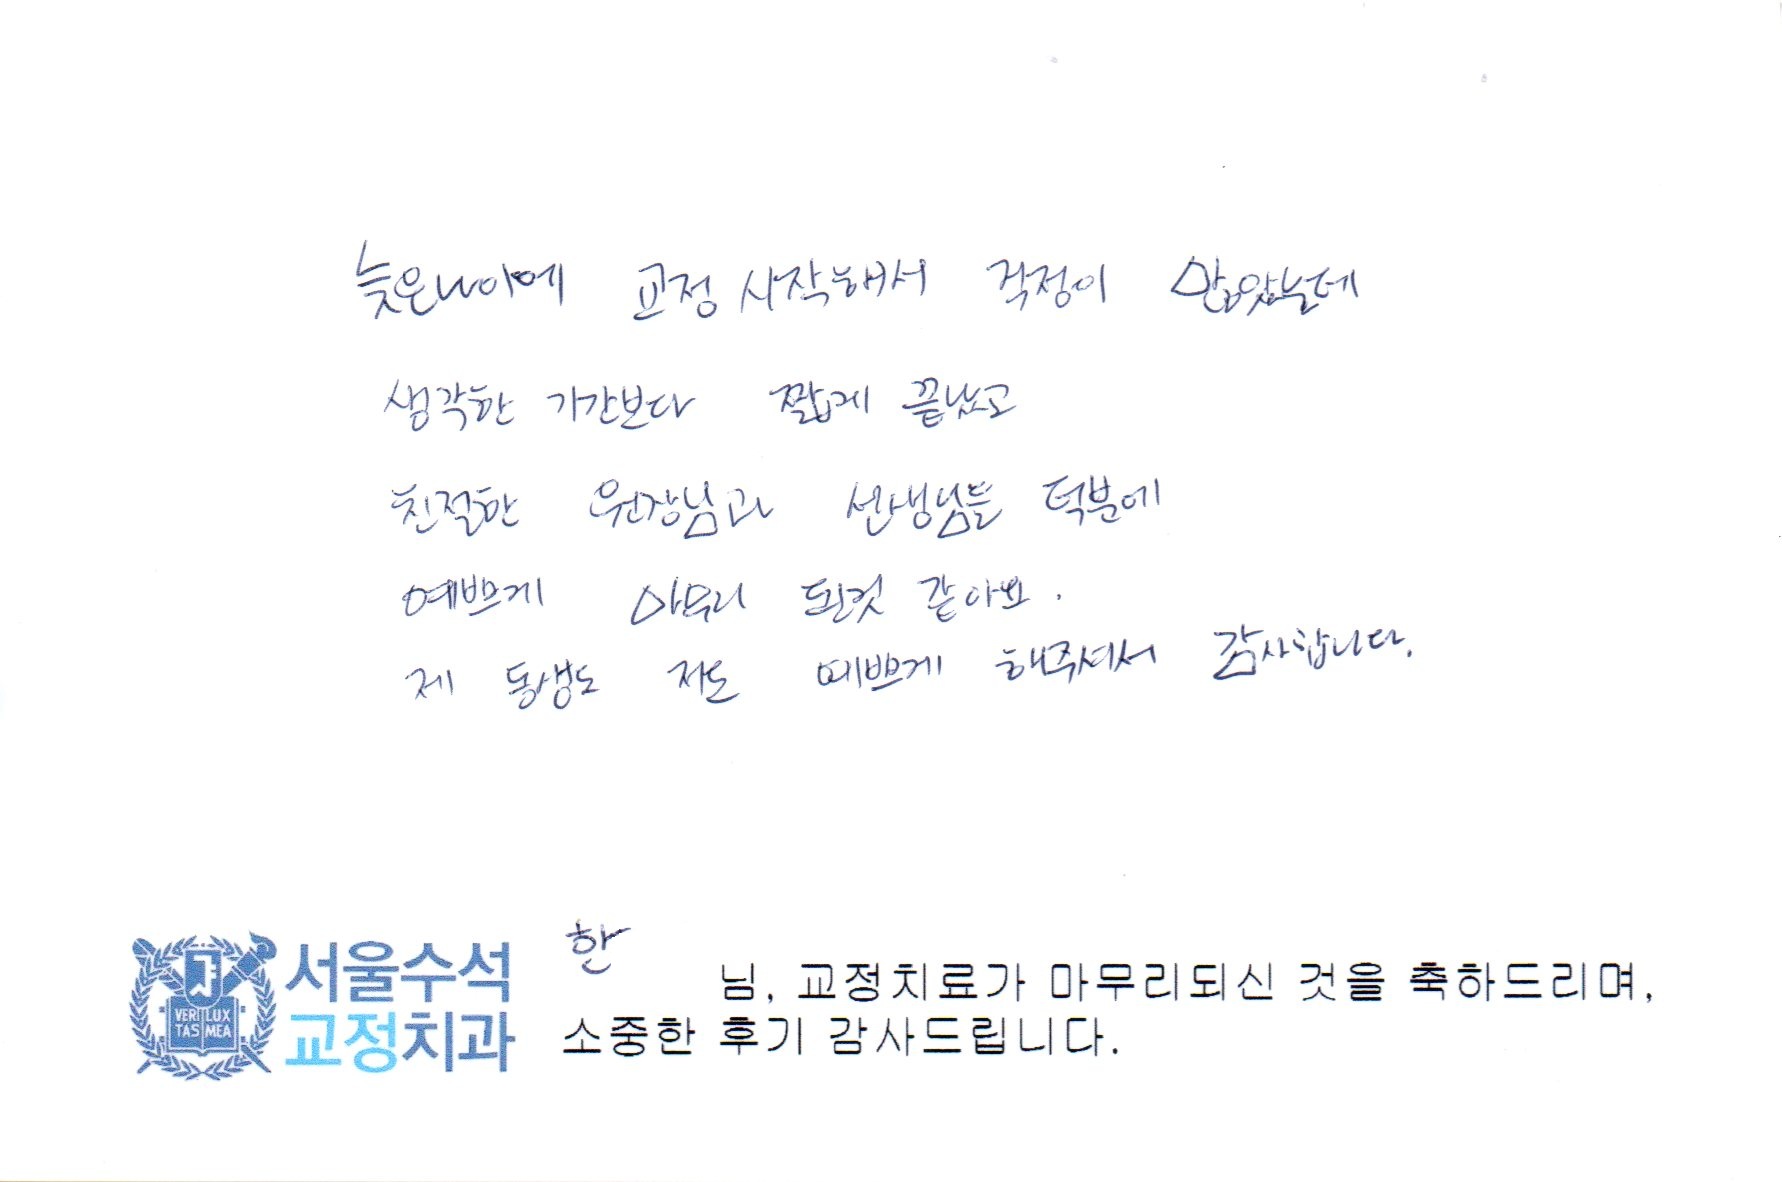 늦은나이에 교정 시작해서 걱정이 많았는데
생각한 기간보다 짧게 끝났고
친절한 원장님과 선생님들 덕분에
예쁘게 마무리 된것 같아요.
제 동생도 저도 예쁘게 해주셔서 감사합니다.
한
님, 교정치료가 마무리되신 것을 축하드리며,
소중한 후기 감사드립니다.
서울수석
교정치과
VERI LUX
TAS MEA